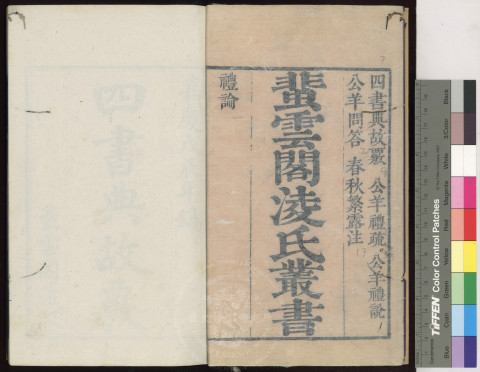 四書典故覈 公羊禮疏 公羊禮說
公羊問答 春秋繁露注
蜚雲閣淩氏叢書
禮論
四書典故
TIFFEN Color Control Patches
Blue
Cyan
Green
Yellow
Red
Magenta
White
3/Color
Black